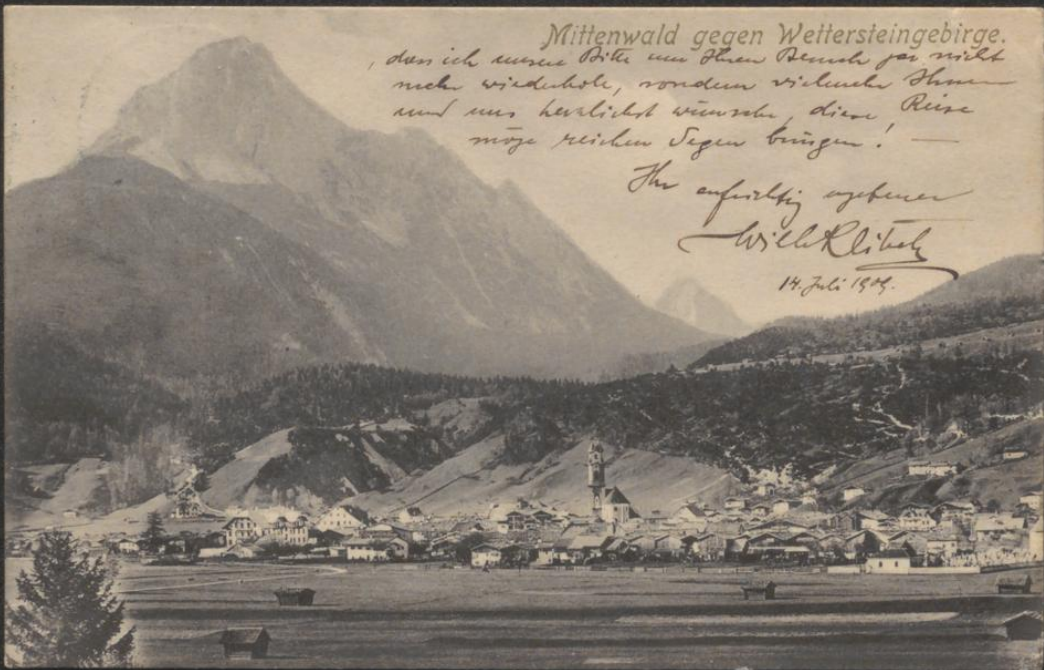 Mittenwald gegen Wettersteingebirge.
, dass ich unsere Bitte um Ihren Besuch gar nicht
mehr wiederhole, sondern vielmehr Ihnen
und uns herzlichst wünsche, diese Reise
möge reichen Segen bringen! —
Ihr aufrichtig ergebener
14. Juli 1909.